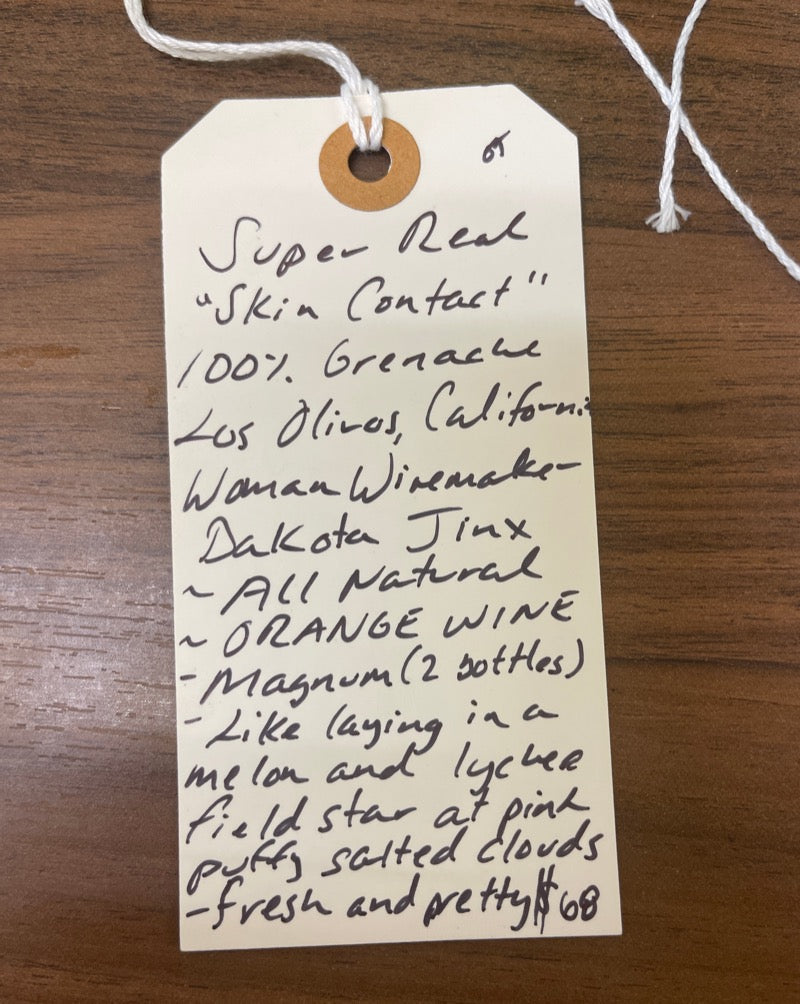 Super Real
"Skin Contact"
100% Grenache
Los Olivos, California
Woman Winemaker
Dakota Jinx
~ All Natural
~ ORANGE WINE
- Magnum (2 bottles)
- Like laying in a
melon and lychee
field star at pink
puffy salted clouds
- fresh and pretty $68